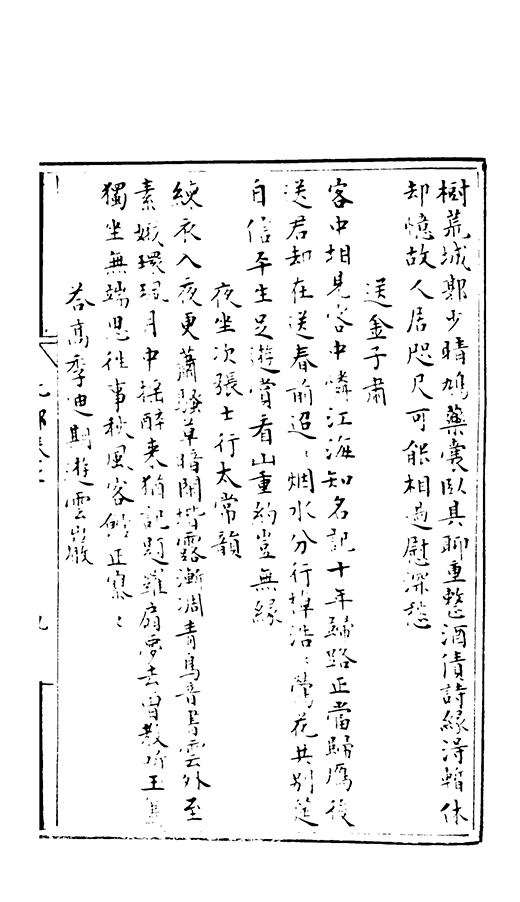 樹荒城郭少晴鳩藥裹臥具聊重整酒債詩緣得暫休
却憶故人居咫尺可能相過慰深愁
送金子肅
客中相見客中憐江海知名記十年歸路正當歸鴈後
送君却在送春前迢〻烟水分行棹浩〻鶯花共別筵
自信平生足遊賞看山重約豈無緣
夜坐次張士行太常韻
練衣入夜更蕭騷草暗閒堦露漸凋青鳥音書雲外至
素娥環珮月中搖醉來猶記題羅扇夢去曾教吹玉簫
獨坐無端思往事秋風客鬢正寥〻
荅高季迪期遊雲巖
九